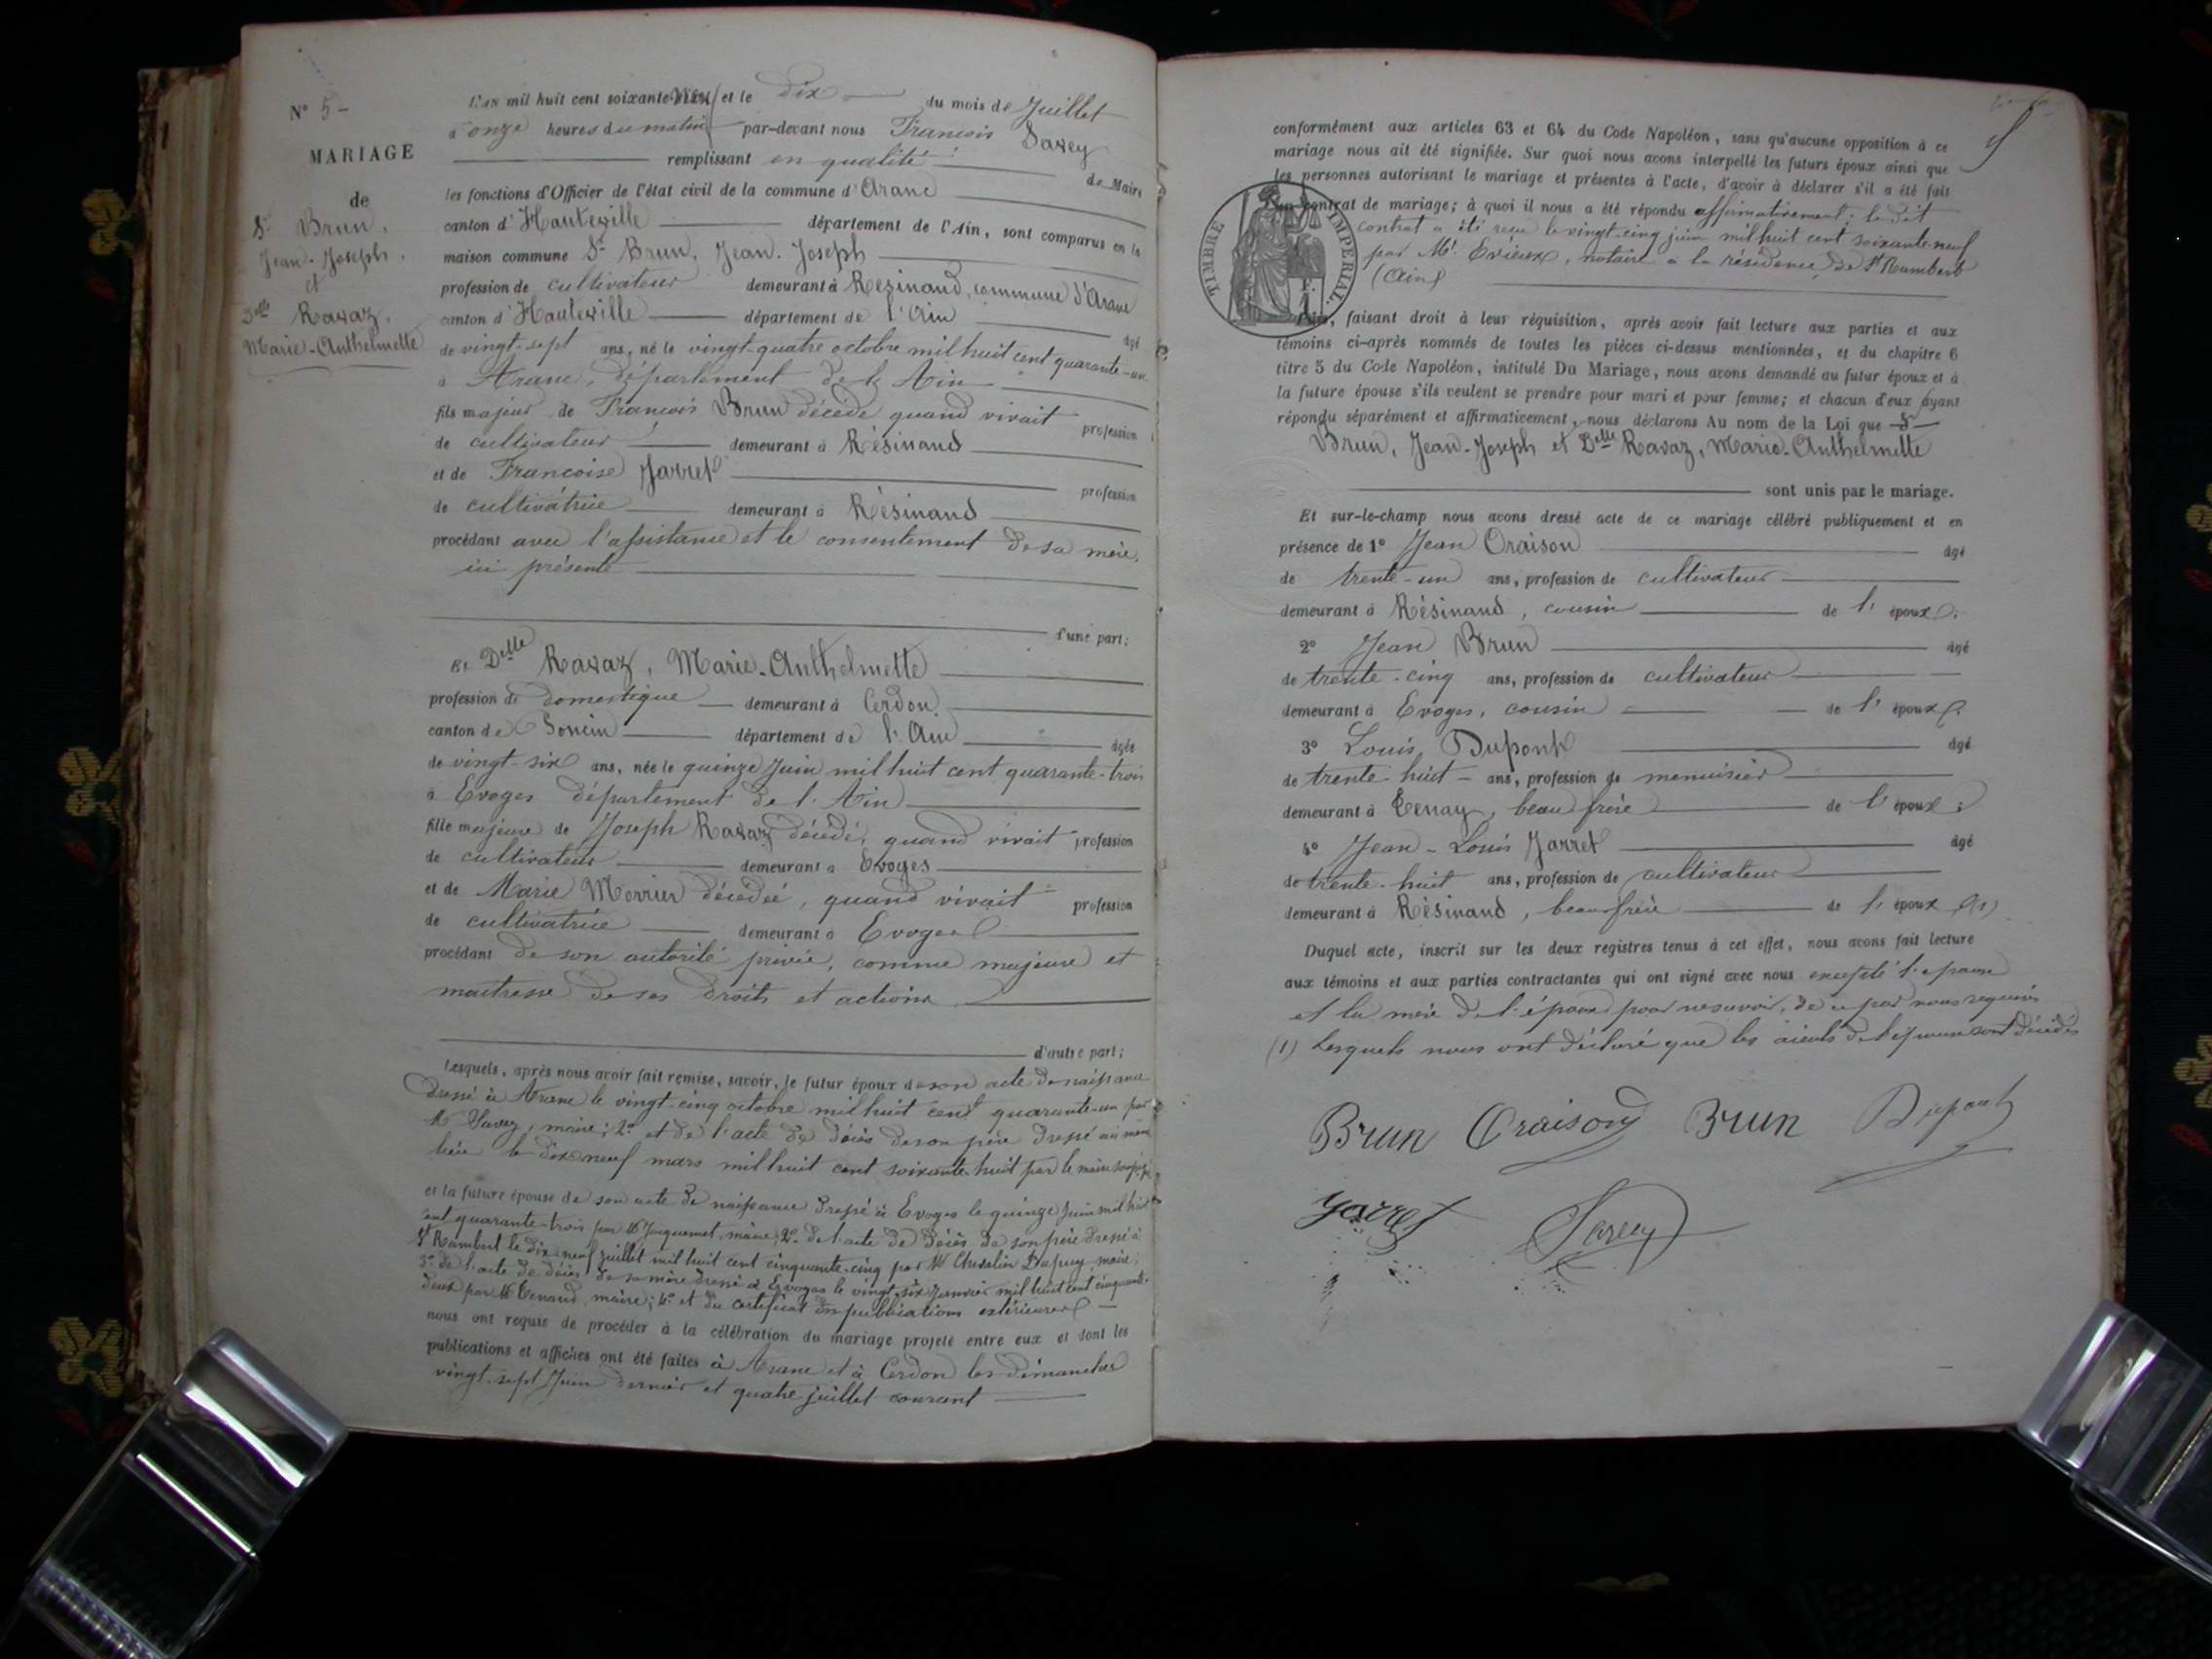 N° 5 -
MARIAGE
de
Sr Brun,
Jean-Joseph,
et
Delle Ravaz,
Marie-Anthelmette
L'an mil huit cent soixante neuf et le dix du mois de Juillet
à onze heures du matin par-devant nous François Savey
remplissant en qualité de Maire
les fonctions d'Officier de l'état civil de la commune d'Aranc
canton d'Hauteville département de l'Ain, sont comparus en la
maison commune Sr Brun, Jean-Joseph
profession de cultivateur demeurant à Résinand, commune d'Aranc
canton d'Hauteville département de l'Ain âgé
de vingt-sept ans, né le vingt-quatre octobre mil huit cent quarante-un
à Aranc, département de l'Ain
fils majeur de François Brun décédé quand vivait profession
de cultivateur demeurant à Résinand
et de Françoise Jarret profession
de cultivatrice demeurant à Résinand
procédant avec l'assistance et le consentement de sa mère,
ici présente
d'une part;
Et Delle Ravaz, Marie-Anthelmette
profession de domestique demeurant à Cerdon
canton de Poncin département de l'Ain âgée
de vingt-six ans, née le quinze Juin mil huit cent quarante-trois
à Evoges département de l'Ain
fille majeure de Joseph Ravaz décédé, quand vivait profession
de cultivateur demeurant à Evoges
et de Marie Merrier décédée, quand vivait profession
de cultivatrice demeurant à Evoges
procédant de son autorité privée, comme majeure et
maitresse de ses droits et actions
d'autre part;
Lesquels, après nous avoir fait remise, savoir, le futur époux de son acte de naissance
dressé à Aranc le vingt-cinq octobre mil huit cent quarante-un par
M. Savey, maire; 2° et de l'acte de décès de son père dressé au même
lieu le dix neuf mars mil huit cent soixante-huit par le maire
et la future épouse de son acte de naissance dressé à Evoges le quinze Juin mil huit
cent quarante-trois par M. Jacquemet, maire; 2° de l'acte de décès de son père dressé à
St Rambert le dix-neuf juillet mil huit cent cinquante-cinq par M. Chevalier Dupuy, maire;
3° de l'acte de décès de sa mère dressé à Evoges le vingt-six Janvier mil huit cent cinquante-
deux par M. Tenand, maire; 4° et du certificat des publications extérieures
nous ont requis de procéder à la célébration du mariage projeté entre eux et dont les
publications et affiches ont été faites à Aranc et à Cerdon les dimanches
vingt-sept Juin dernier et quatre juillet courant
conformément aux articles 63 et 64 du Code Napoléon, sans qu'aucune opposition à ce
mariage nous ait été signifiée. Sur quoi nous avons interpellé les futurs époux ainsi que
les personnes autorisant le mariage et présentes à l'acte, d'avoir à déclarer s'il a été fait
un contrat de mariage; à quoi il nous a été répondu affirmativement; le dit
contrat a été reçu le vingt-cinq juin mil huit cent soixante-neuf
par Me Evieux, notaire à la résidence de St Rambert
(Ain)
TIMBRE IMPÉRIAL.
F.
1
faisant droit à leur réquisition, après avoir fait lecture aux parties et aux
témoins ci-après nommés de toutes les pièces ci-dessus mentionnées, et du chapitre 6
titre 5 du Code Napoléon, intitulé Du Mariage, nous avons demandé au futur époux et à
la future épouse s'ils veulent se prendre pour mari et pour femme; et chacun d'eux ayant
répondu séparément et affirmativement, nous déclarons Au nom de la Loi que Sr
Brun, Jean-Joseph et Delle Ravaz, Marie-Anthelmette
sont unis par le mariage.
Et sur-le-champ nous avons dressé acte de ce mariage célébré publiquement et en
présence de 1° Jean Oraison âgé
de trente-un ans, profession de cultivateur
demeurant à Résinand, cousin de l'époux.
2° Jean Brun âgé
de trente-cinq ans, profession de cultivateur
demeurant à Evoges, cousin de l'époux.
3° Louis Dupont âgé
de trente-huit ans, profession de menuisier
demeurant à Tenay, beau frère de l'époux;
4° Jean-Louis Jarret âgé
de trente-huit ans, profession de cultivateur
demeurant à Résinand, beau-frère de l'époux (1)
Duquel acte, inscrit sur les deux registres tenus à cet effet, nous avons fait lecture
aux témoins et aux parties contractantes qui ont signé avec nous excepté l'épouse
et la mère de l'époux pour ne savoir, de ce par nous requises
(1) Lesquels nous ont déclaré que les aieuls de l'épouse sont décédés
Brun Oraison Brun Dupont
Jarret Savey